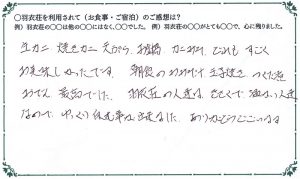 ○羽衣荘を利用されて(お食事・ご宿泊)のご感想は?
例)羽衣荘の○○は他の○○にはなく、○○でした。 例)羽衣荘の○○がとても○○で、心に残りました。
生カニ 焼きカニ 天ぷら、 カニみそ、どれも すごく
お美味しかったです。 朝食の 玉子焼き つくだ煮
最高でした。 羽衣荘の人達は、 人達
なので、ゆっくり 食事が出来ました。ありがとうございます